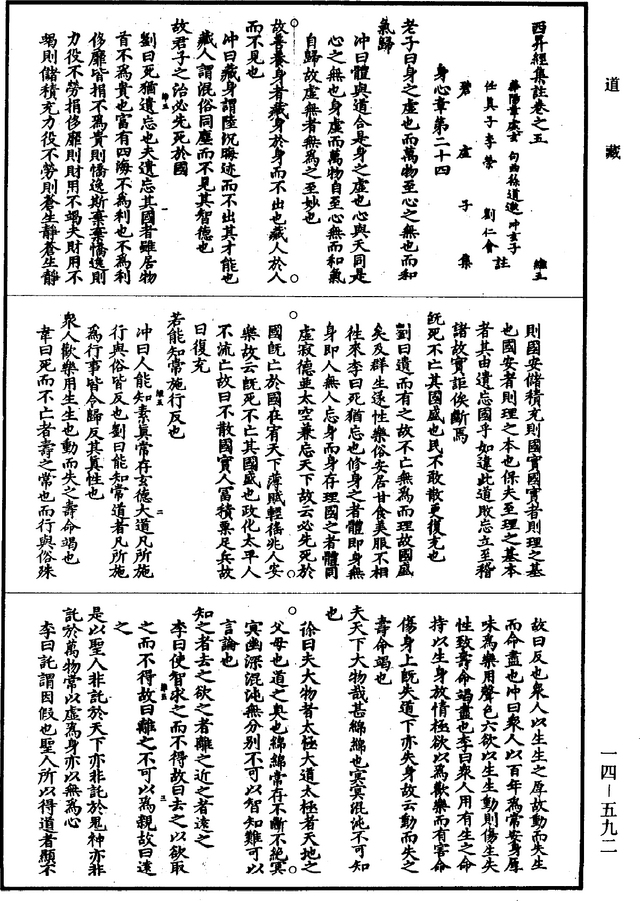 道藏
西昇經集註卷之五 維五
華陽韋處玄 句曲徐道邈 沖玄子
任真子李榮 劉仁會 註
碧虛子 集
身心章第二十四
老子曰身之虛也而萬物至心之無也而和
氣歸
沖曰體與道合是身之虛也心與天同是
心之無也身虛而萬物自至心無而和氣
自歸故虛無者無為之至妙也
故善養身者藏身於身而不出也藏人於人
而不見也
沖曰藏身謂陸沉晦迹而不出其才能也
藏人謂混俗同塵而不見其智德也
故君子之治必先死於國
劉曰死猶遺忘也夫遺忘其國者雖居物
首不為貴也富有四海不為利也不為利
侈靡皆捐不為貴則憍逸斯棄棄憍逸則
力役不勞捐侈靡則財用不竭夫財用不
竭則儲積充力役不勞則蒼生靜蒼生靜
則國安儲積充則國實國實者則理之基
也國安者則理之本也保夫至理之基本
者其由遺忘國乎如違此道敗忘立至稽
諸故實詎俟斷焉
既死不亡其國盛也民不敢散更復充也
劉曰遺而有之故不亡無為而理故國盛
矣及群生遂性樂俗安居甘食美服不相
往來李曰死猶忘也修身之者體即身無
身即人無人忘身而身存理國之者體同
虛寂德並太空兼忘天下故云必先死於
國既亡於國在宥天下薄賦輕徭兆人安
樂故云既死不亡其國盛也政化太平人
不流亡故曰不散國實人富積粟足兵故
曰復充
若能知常施行反也
沖曰人能知素真常存玄德大道凡所施
行與俗皆反也劉曰能知常道者凡所施
為行事皆令歸反其真性也
衆人歡樂用生生也動而失之壽命竭也
韋曰死而不亡者壽之常也而行與俗殊
故曰反也衆人以生生之厚故動而失生
而命盡也沖曰衆人以百年為常安身厚
味為樂用聲色六欲以生生動則傷生失
性致壽命竭盡也李曰衆人用有生之命
持以生身放情極欲以為歡樂而有害命
傷身上既失道下亦失身故云動而失之
壽命竭也
夫天下大物哉甚綿綿也冥冥混沌不可知
也
徐曰夫大物者太極大道太極者天地之
父母也道之奧也綿綿常存不斷不絕冥
冥幽深混沌無分別不可以智知難可以
言論也
知之者去之欲之者離之近之者遠之
李曰使智求之而不得故曰去之以欲取
之而不得故曰離之不可以為親故曰遠
之
是以聖人非託於天下亦非託於鬼神亦非
託於萬物常以虛為身亦以無為心
李曰託謂因假也聖人所以得道者顯不
一四—五九二